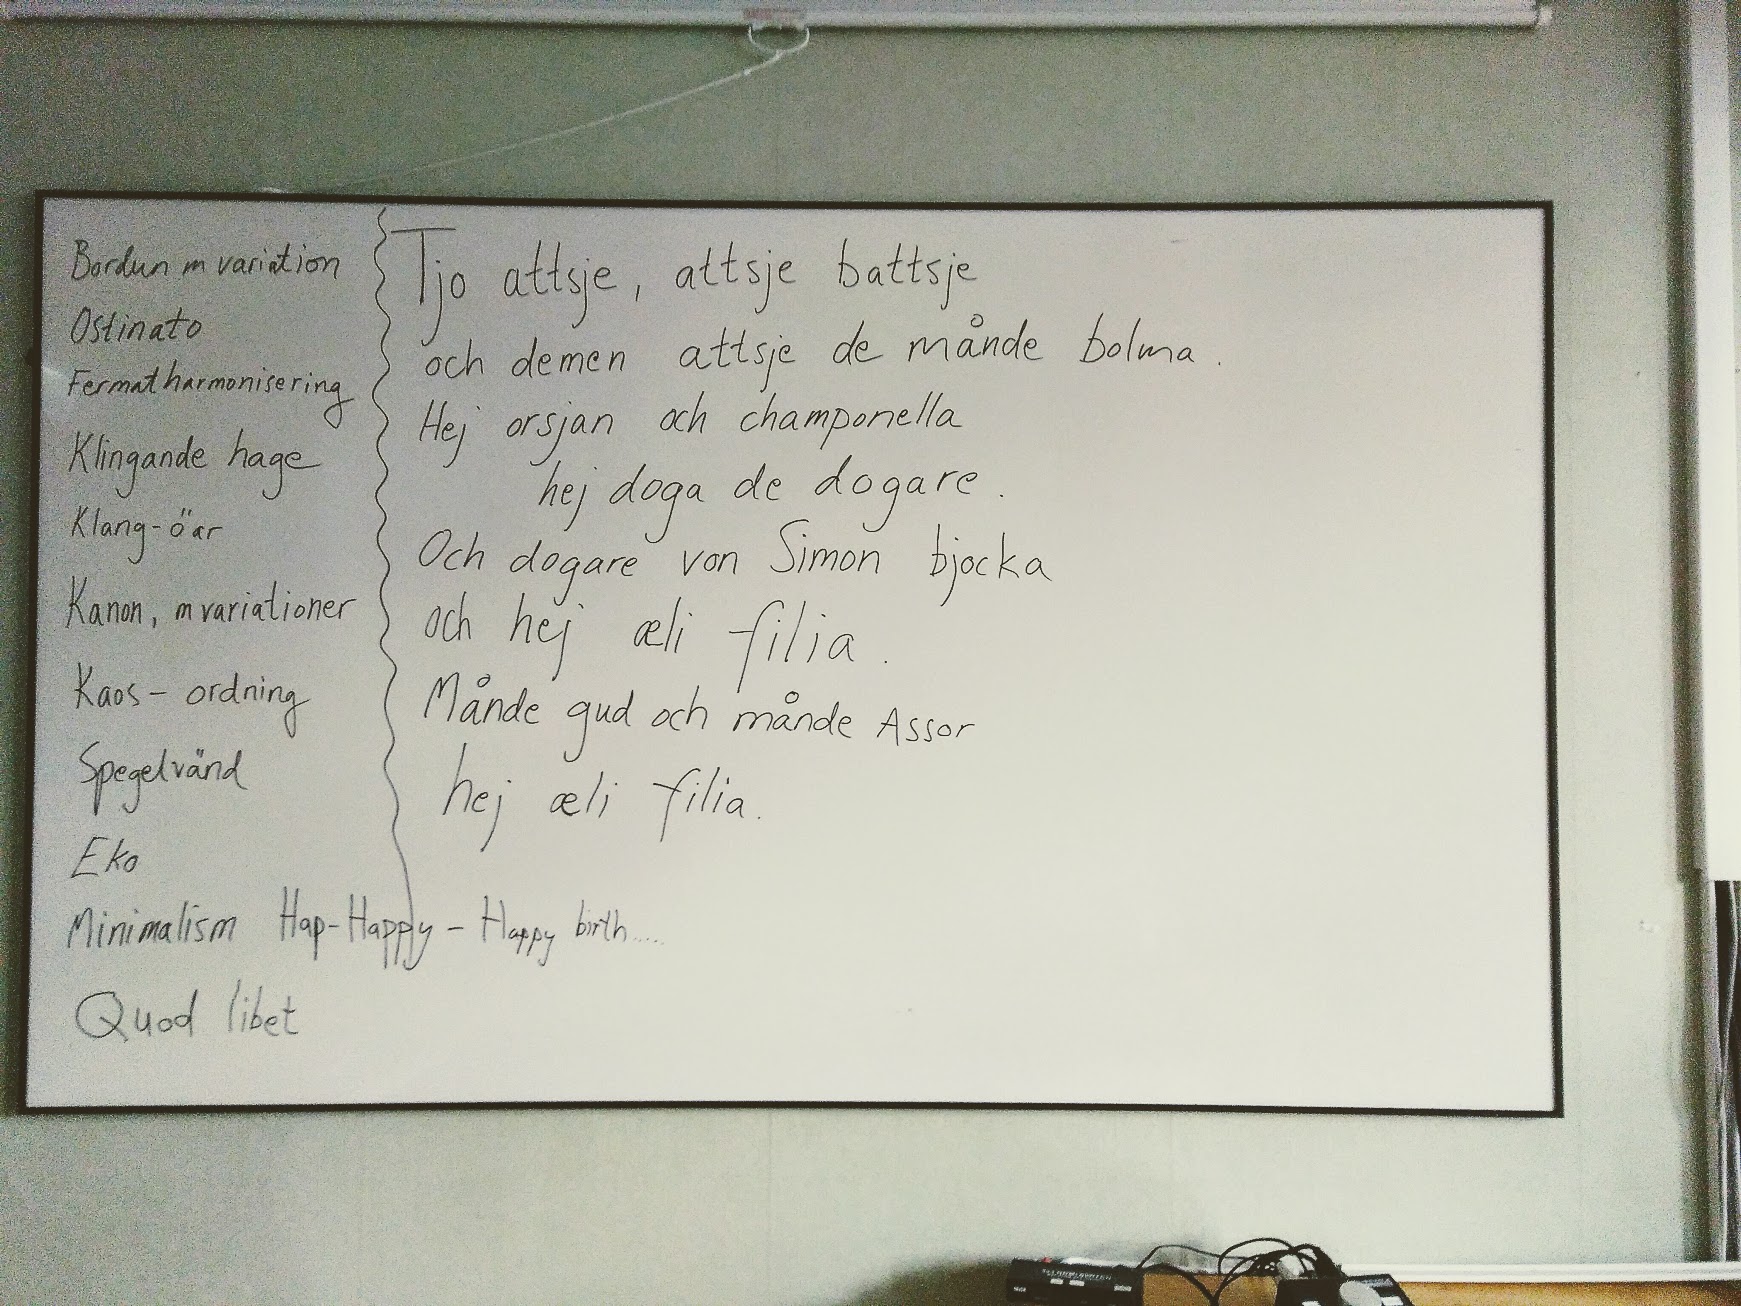 Bordun m variation
Ostinato
Fermatharmonisering
Klingande hage
Klang-öar
Kanon, m variationer
Kaos - ordning
Spegelvänd
Eko
Minimalism Hap-Happy - Happy birth.....
Quod libet
Tjo attsje, attsje battsje
och demen attsje de månde bolma.
Hej orsjan och champonella
hej doga de dogare.
Och dogare von Simon bjocka
och hej æli filia.
Månde gud och månde Assor
hej æli filia.